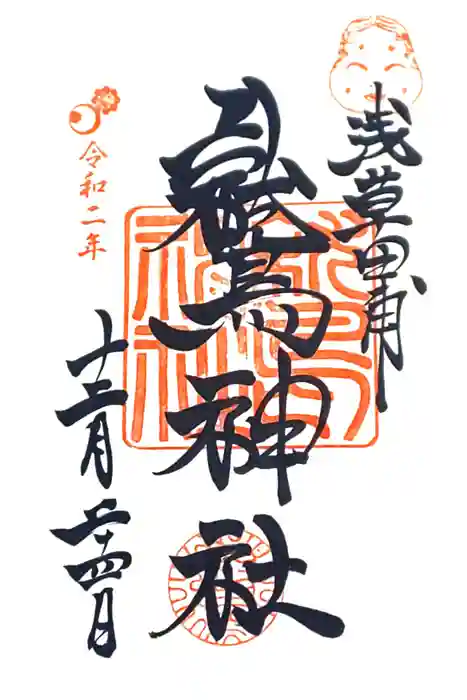 浅草田甫
鷲神社
令和二年
十二月二十四日